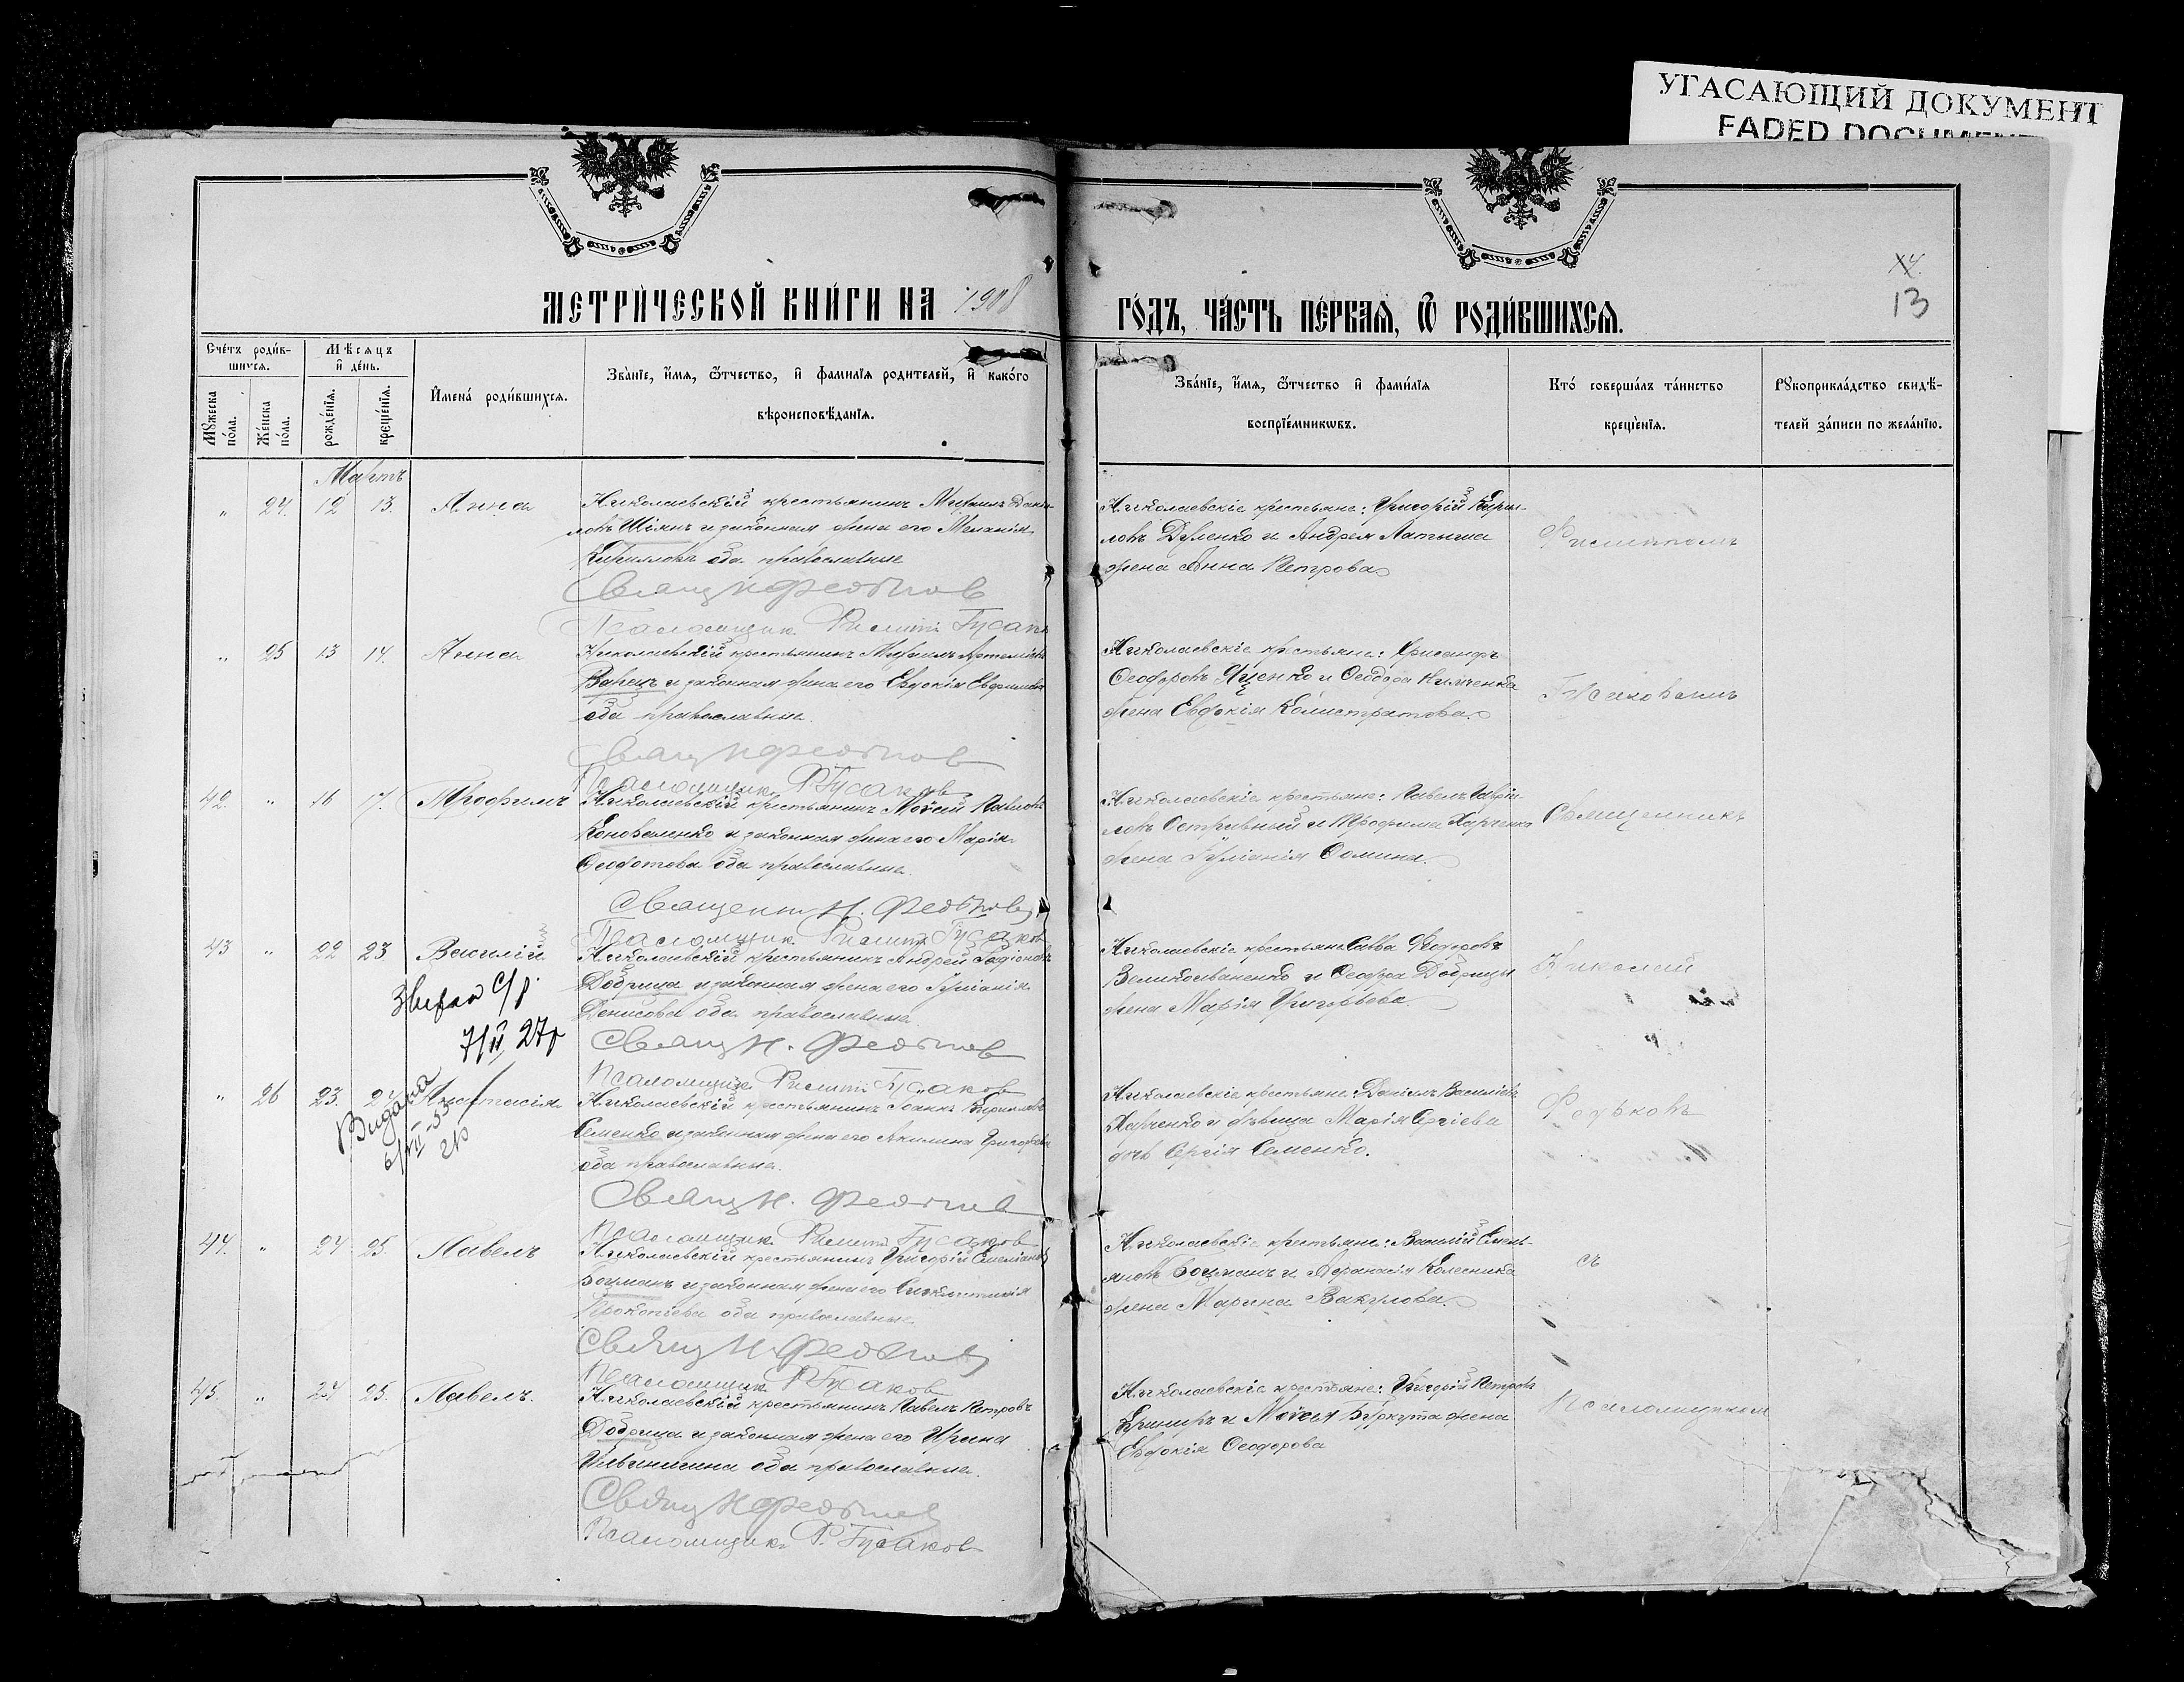 УГАСАЮЩИЙ ДОКУМЕНТ
FADED DOCUMENT
МЕТРИ́ЧЕСКОЙ КНИ́ГИ НА 1908
ГО́ДЪ, ЧА́СТЬ ПЕ́РВАѦ, Ѿ РОДИ́ВШИХСѦ.
13
Сче́тъ роди́в-
шихсѧ.
Мꙋжеска по́ла.
Же́нска по́ла.
Мѣ́сѧцъ
и҆ де́нь.
рожде́нїѧ.
креще́нїѧ.
И҆мена̀ роди́вшихсѧ.
Зва́нїе, и҆́мѧ, ѻ҆́тчество, и҆ фамилїѧ родителей, и҆ како́го
вѣроисповѣ́данїѧ.
Зва́нїе, и҆́мѧ, ѻ҆́тчество и҆ фами́лїѧ
воспрїе́мникѡвъ.
Кто́ соверша́лъ та́инство
креще́нїѧ.
Рꙋкоприкла́дство свидѣ́-
телей за́писи по жела́нїю.
Мартъ
" 24. 12 13. Анна
Николаевскій крестьянинъ Михаилъ Дани-
ловъ Шіянъ и законная жена его Меланія
Кириллова оба православные
Свящ Н Федьков
Псаломщик Филипп Гусаков
Николаевскіе крестьяне: Григорій Кирил-
ловъ Дуленко и Андрея Латыша
жена Анна Петрова
Филиппомъ
" 25 13 14. Анна
Николаевскій крестьянинъ Михаилъ Артеміевъ
и законная жена его Евдокія
оба православные.
Свящ Н Федьков
Псаломщик Ф Гусаков
Николаевскіе крестьяне: Хрисанфъ
Феодоровъ Яценко и Феодора
жена Евдокія Калистратова
Гусаковымъ
42. " 16 17. Трофимъ
Николаевскій крестьянинъ Мойсей Павловъ
Коноваленко и законная жена его Марія
Феодотова оба православные.
Священник Н. Федьков
Псаломщик Филипп Гусаков
Николаевскіе крестьяне: Павелъ Гаврии-
ловъ Остривный и Трофима Харченко
жена Іуліанія Фомина.
Священникъ
43 " 22 23 Василій
Николаевскій крестьянинъ Андрей Родіоновъ
Добрица и законная жена его Іуліанія
Денисова оба православные
Свящ Н. Федьков
Псаломщик Филипп Гусаков
Николаевскіе крестьяне Савва Феодоровъ
Великоиваненко и Феодора Добрицы
жена Марія Григорьева
Николай
27г
" 26 23. 24 Анастасія
Видана
Николаевскій крестьянинъ Іоаннъ Кирилловъ
Семенко и законная жена его Акилина Григорьева
оба православные.
Свящ Н. Федьков
Псаломщик Филипп Гусаков
Николаевскіе крестьяне: Даніилъ Василіевъ
Харченко и дѣвица Марія Сергіева
дочь Сергія Семенко.
Федьковъ
44. " 24 25. Павелъ
Николаевскій крестьянинъ Григорій Емеліановъ
Боцманъ и законная жена его Синклитикія
Прокопіева оба православные.
Свящ Н. Федьков
Псаломщик Ф Гусаков
Николаевскіе крестьяне: Василій Емель-
яновъ Боцманъ и Афанасія Колесника
жена Марина Вакулова
съ
45. " 24 25. Павелъ.
Николаевскій крестьянинъ Павелъ Петровъ
Добрица и законная жена его Ирина
оба православные.
Свящ Н Федьков
Псаломщик Ф. Гусаков
Николаевскіе крестьяне: Григорій Петровъ
и Мойсея Буркута жена
Евдокія Феодорова
Псаломщикомъ